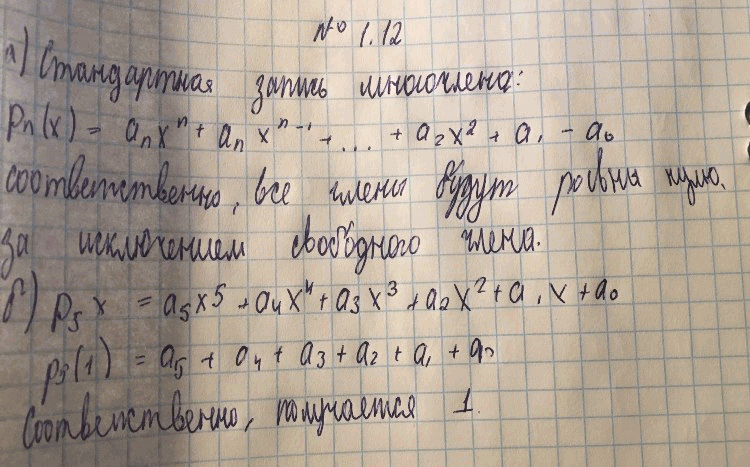 № 1.12
а) Стандартная запись многочлена:
Pn(x) = aₙxⁿ + aₙ xⁿ⁻¹ + ... + a₂x² + a₁ - a₀
соответственно, все члены будут равны нулю,
за исключением свободного члена.
б) P₅ x = a₅x⁵ + a₄x⁴ + a₃x³ + a₂x² + a₁x + a₀
P₅(1) = a₅ + a₄ + a₃ + a₂ + a₁ + a₀
Соответственно, получается 1.